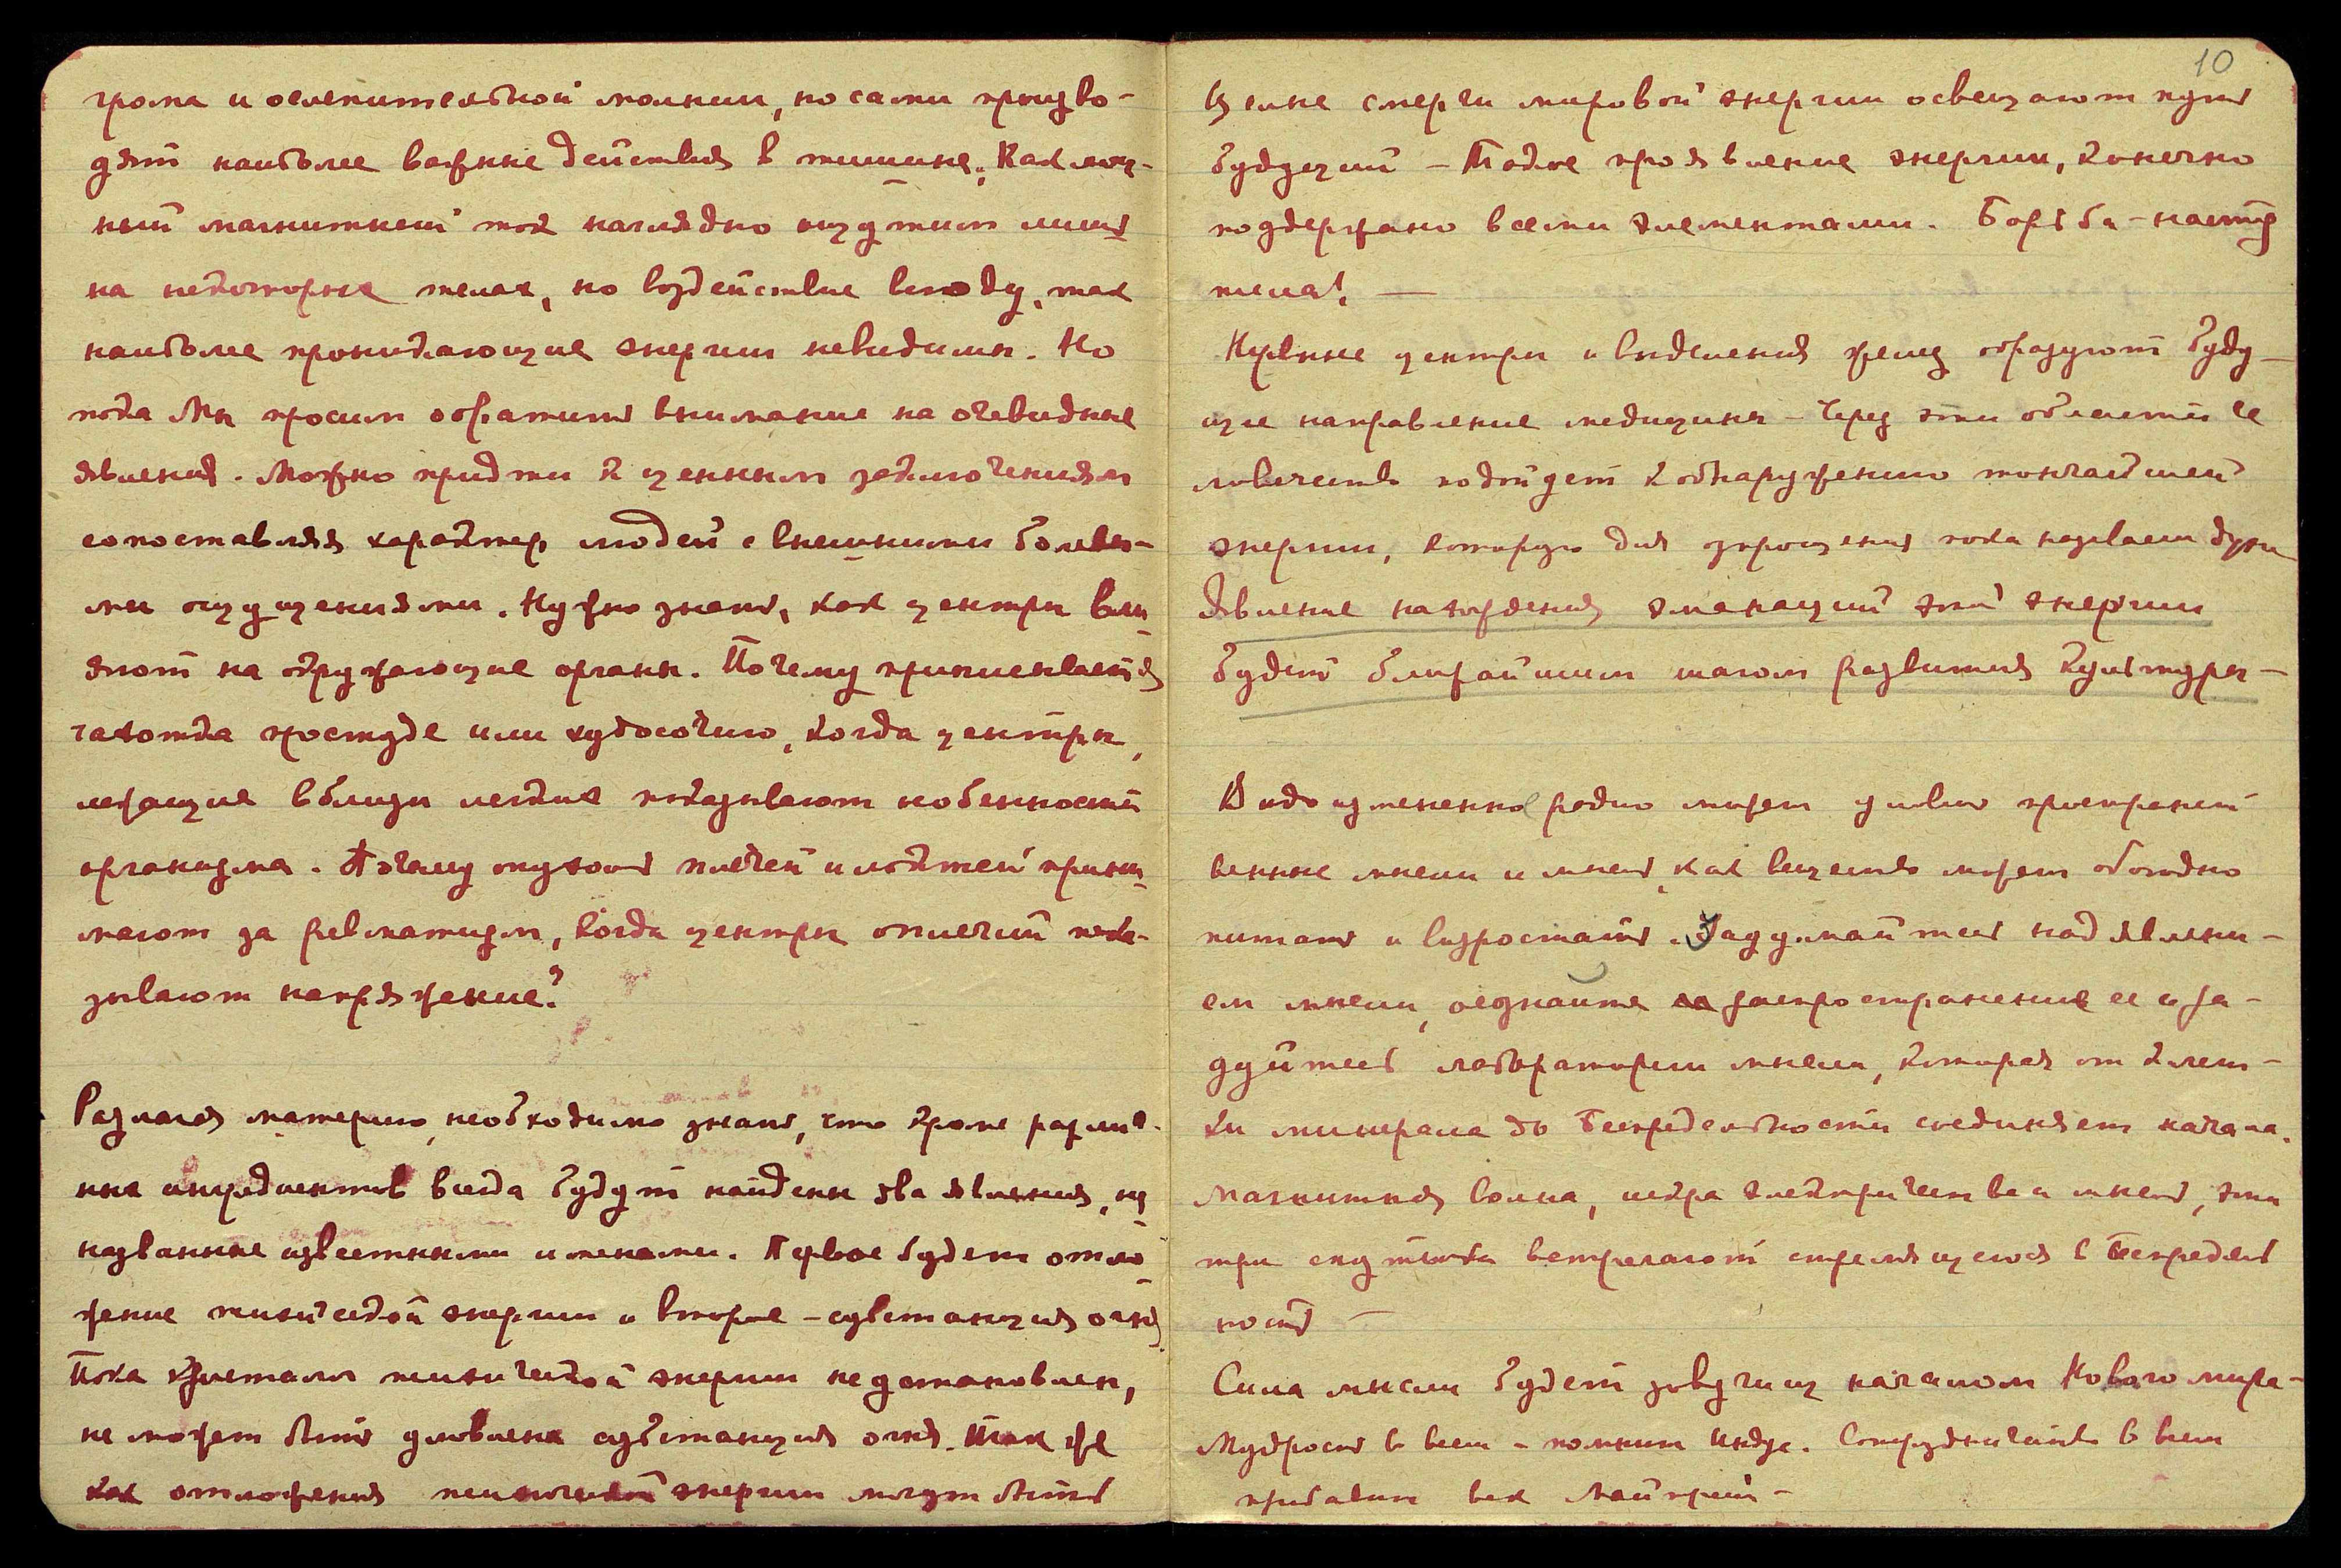 грома и ослепительной молнии, но сами произво-
дят наиболее важные действия в тишине. Как мощ-
ный магнитный ток наглядно ощутим лишь
на некоторых телах, но воздействие всюду, так
наиболее проникающие энергии невидимы. Но
пока Мы просим обратить внимание на очевидные
явления. Можно придти к ценным заключениям
сопоставляя характер людей с внешними болевы-
ми ощущениями. Нужно знать, как центры вли-
яют на окружающие органы. Почему приписывается
чахотка простуде или худосочию, когда центры,
лежащие вблизи легких показывают особенности
организма. Почему опухоль плечей и локтей прини-
мают за ревматизм, когда центры оплечий пока-
зывают напряжение?
Разлагая материю, необходимо знать, что кроме различ-
ных ингредиентов всегда будут найдены два явления, не
названные известными именами. Первое будет отло-
жение психической энергии и второе - субстанция огня.
Пока кристалл психической энергии не установлен,
не может быть уловлена субстанция огня. Так же
как отложения психической энергии могут быть
10
Целые смерчи мировой энергии освещают путь
будущий - Такое проявление энергии, конечно
поддержано всеми элементами. Борьба -
Нервные центры и выделения желез образуют буду-
щее направление медицины - Через эти области че
ловечество подойдет к обнаружению тончайшей
энергии, которую для упрощения пока назвали духом
Явление нахождения эманаций этой энергии
будет ближайшим шагом развития культуры -
Видоизмененное радио может уловить пространст
венные мысли и мысль, как вещество может обоюдно
питать и вырастать. Задумайтесь над явлени-
ем мысли, осознайте распространение ее и ра-
дуйтесь лаборатории мысли, которая от клет-
ки минерала до Беспредельности соединяет начала.
Магнитная волна, искра электричества и мысль, эти
три спутника встречают стремящегося в Беспредель
ность -
Сила мысли будет зовущим началом Нового мира -
Мудрость во всем - помним Инды. Сотрудничество во всем
прибавим век Майтрейи -